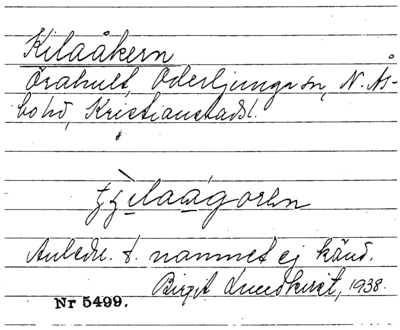 Kilaåkern
Örahult, Oderljunga sn, N. Ås-
bo hd, Kristianstads l.
Anledn. t. namnet ej känd.
Birgit Lundkvist, 1938.
Nr 5499.